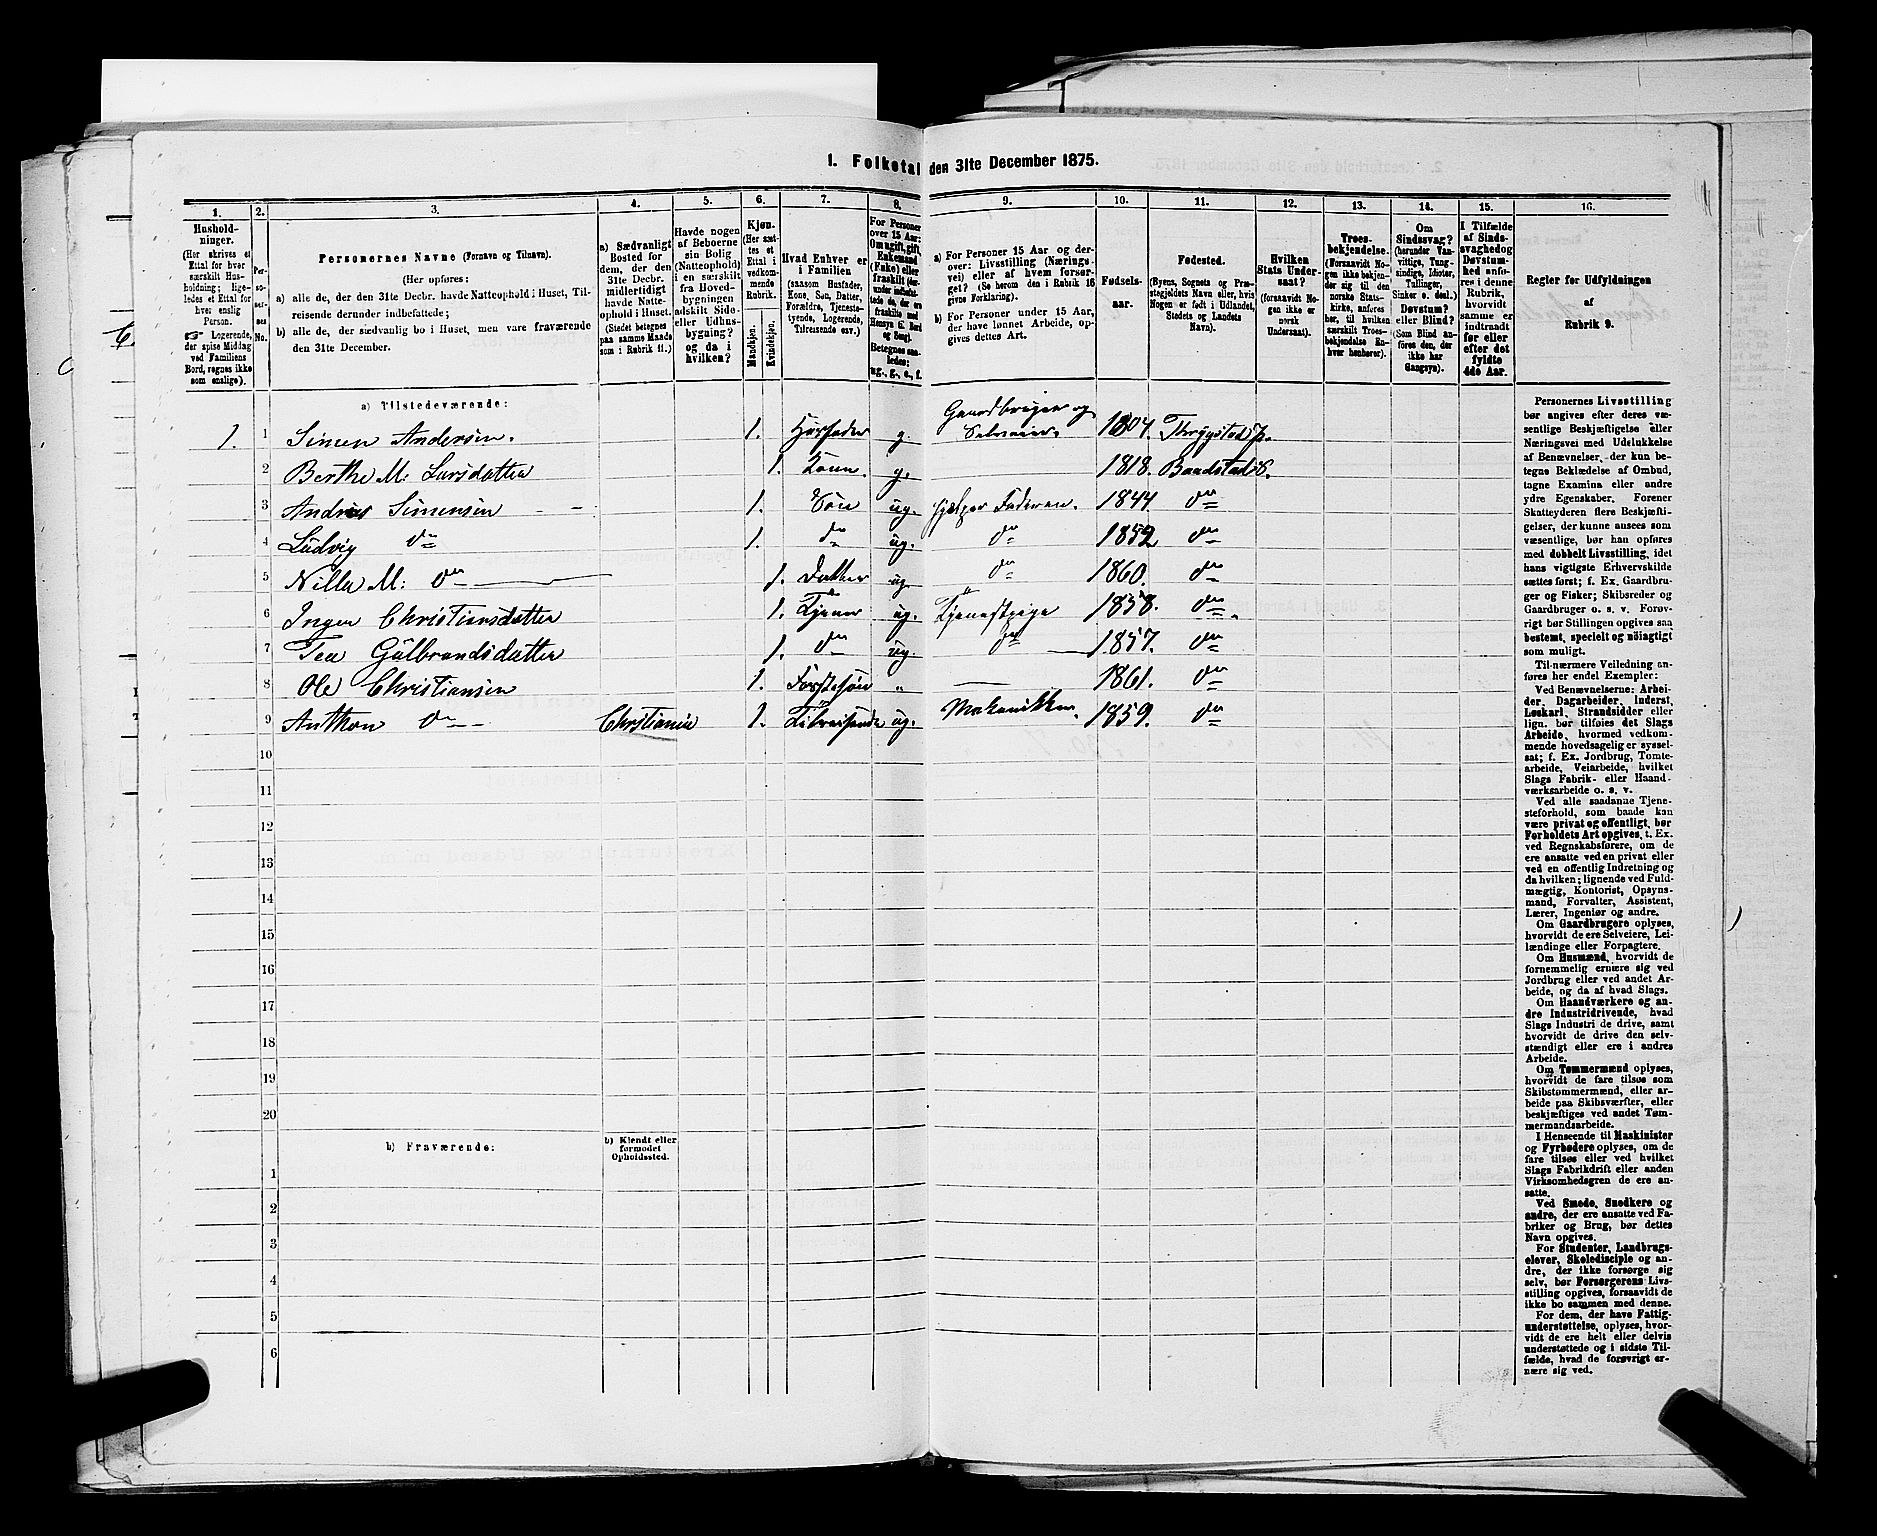 1. Folketal den 31te December 1875.
1.
2.
3.
4.
5.
6.
7.
8.
9.
10.
11.
12.
13.
14.
15.
16.
Hushold-
ninger.
(Her skrives et
Ettal for hver
særskilt Hus-
holdning; lige-
ledes et Ettal for
hver enslig
Person.
Logerende,
der spise Middag
ved Familiens
Bord, regnes ikke
som enslige).
Per-
so-
ner-
nes
No.
Personernes Navne (Fornavn og Tilnavn).
(Her opføres:
a) alle de, der den 31te Decbr. havde Natteophold i Huset, Til-
reisende derunder indbefattede;
b) alle de, der sædvanlig bo i Huset, men vare fraværende
den 31te December.
a) Sædvanligt
Bosted for
dem, der den
31te Decbr.
midlertidigt
havde Natte-
ophold i Huset.
(Stedet betegnes
paa samme Maade
som i Rubrik 11.)
Havde nogen
af Beboerne
sin Bolig
(Natteophold)
i en særskilt
fra Hoved-
bygningen
adskilt Side-
eller Udhus-
bygning?
og da i
hvilken?
Kjøn.
(Her sæt-
tes et
Ettal i
vedkom-
mende
Rubrik.
Mandkjøn.
Kvindekjøn.
Hvad Enhver er
i Familien
(saasom Husfader,
Kone, Søn, Datter,
Forældre, Tjeneste-
tyende, Logerende,
Tilreisende osv.)
For Personer
over 15 Aar:
Om ugift, gift,
Enkemand
(Enke) eller
fraskilt
Betegnes saa-
ledes:
ug., g., e., f.
a) For Personer 15 Aar og der-
over: Livsstilling (Nærings-
vei) eller af hvem forsør-
get? (Se herom den i Rubrik 16
givne Forklaring).
b) For Personer under 15 Aar,
der have lønnet Arbeide, op-
gives dettes Art.
Fødsels-
aar.
Fødested.
(Byens, Sognets og Præ-
stegjeldets Navn eller, hvis
Nogen er født i Udlandet,
Stedets og Landets
Navn).
Hvilken
Stats Under-
saat?
(forsaavidt No-
gen ikke er
norsk
Undersaat).
Troes-
bekjendelse.
(Forsaavidt No-
gen ikke bekjen-
der sig til den
norske Stats-
kirke, anføres
her, til hvilken
særskilt Troes-
bekjendelse En-
hver henhører).
Om
Sindssvag?
(herunder Van-
vittige, Tung-
sindige, Idioter,
Tullinger,
Sinker o. desl.)
Døvstum?
eller Blind?
(Som Blind an-
føres den, der
ikke har
Gangsyn).
I Tilfælde
af Sinds-
svaghed og
Døvstum-
hed anfø-
res i denne
Rubrik,
hvorvidt
samme er
indtraadt
før eller
efter det
fyldte
4de Aar.
Regler for Udfyldningen
af
Rubrik 9.
a) Tilstedeværende:
1. 1 Simen Andersen. 1. Husfader g. Gaardbruger og Selveier. 1804. Thrygstad Pr.
2 Berthe M. Larsdatter 1. Kone. g. 1818. Baadstad S.
3 Andreas Simensen 1. Søn ug. hjælper Faderen. 1844 do
4 Ludvig do 1. do ug. do 1852 do
5 Nilla M. do 1. Datter ug. do 1860. do
6 Inger Christiansdatter 1. Tjener ug. Tjenestpige 1858. do
7 Tea Gulbrandsdatter 1. do ug. do 1857. do
8 Ole Christiansen 1. Fostersøn " 1861. do
9 Anthon do Christiania 1. Tilreisende ug. Mekaniker. 1859. do
10
11
12
13
14
15
16
17
18
19
20
b) Fraværende:
b) Kjendt eller
formodet
Opholdssted.
1
2
3
4
5
6
Personernes Livsstilling
bør angives efter deres væ-
sentlige Beskjæftigelse eller
Næringsvei med Udelukkelse
af Benævnelser, der kun be-
tegne Beklædelse af Ombud,
tagne Examina eller andre
ydre Egenskaber. Forener
Skatteyderen flere Beskjæfti-
gelser, der kunne ansees som
væsentlige, bør han opføres
med dobbelt Livsstilling, idet
hans vigtigste Erhvervskilde
sættes først; f. Ex. Gaardbru-
ger og Fisker; Skibsreder og
Gaardbruger o. s. v. Forøv-
rigt bør Stillingen opgives saa
bestemt, specielt og nøiagtigt
som muligt.
Til nærmere Veiledning an-
føres her endel Exempler:
Ved Benævnelserne: Arbei-
der, Dagarbeider, Inderst,
Løskarl, Strandsidder eller
lign. bør tilføies det Slags
Arbeide, hvormed vedkom-
mende hovedsagelig er syssel-
sat; f. Ex. Jordbrug, Tomte-
arbeide, Veiarbeide, hvilket
Slags Fabrik- eller Haand-
værksarbeide o. s. v.
Ved alle saadanne Tjene-
steforhold, som baade kan
være privat og offentligt, bør
Forholdets Art opgives, t. Ex.
ved Regnskabsførere, om de
ere ansatte ved en privat eller
ved en offentlig Indretning og
da hvilken; lignende ved Fuld-
mægtig, Kontorist, Opsyns-
mand, Forvalter, Assistent,
Lærer, Ingeniør og andre.
Om Gaardbrugere oplyses,
hvorvidt de ere Selveiere, Lei-
lændinge eller Forpagtere.
Om Husmænd, hvorvidt de
fornemmelig ernære sig ved
Jordbrug eller ved andet Ar-
beide, og da af hvad Slags.
Om Haandværkere og an-
dre Industridrivende, hvad
Slags Industri de drive, samt
hvorvidt de drive den selv-
stændigt eller ere i andres
Arbeide.
Om Tømmermænd oplyses,
hvorvidt de fare tilsøs som
Skibstømmermænd, eller ar-
beide paa Skibsværfter, eller
beskjæftiges ved andet Tøm-
mermandsarbeide.
I Henseende til Maskinister
og Fyrbødere oplyses, om de
fare tilsøs eller ved hvilket
Slags Fabrikdrift eller anden
Virksomhedsgren de ere an-
satte.
Ved Smede, Snedkere og
andre, der ere ansatte ved Fa-
briker og Brug, bør dettes
Navn opgives.
For Studenter, Landbrugs-
elever, Skoledisciple og an-
dre, der ikke forsørge sig
selv, bør Forsørgerens Livs-
stilling opgives, forsaavidt de
ikke bo sammen med denne.
For dem, der have Fattig-
understøttelse, oplyses, hvor-
vidt de ere helt eller delvis
understøttede og i sidste Til-
fælde, hvad de forøvrigt er-
nære sig ved.